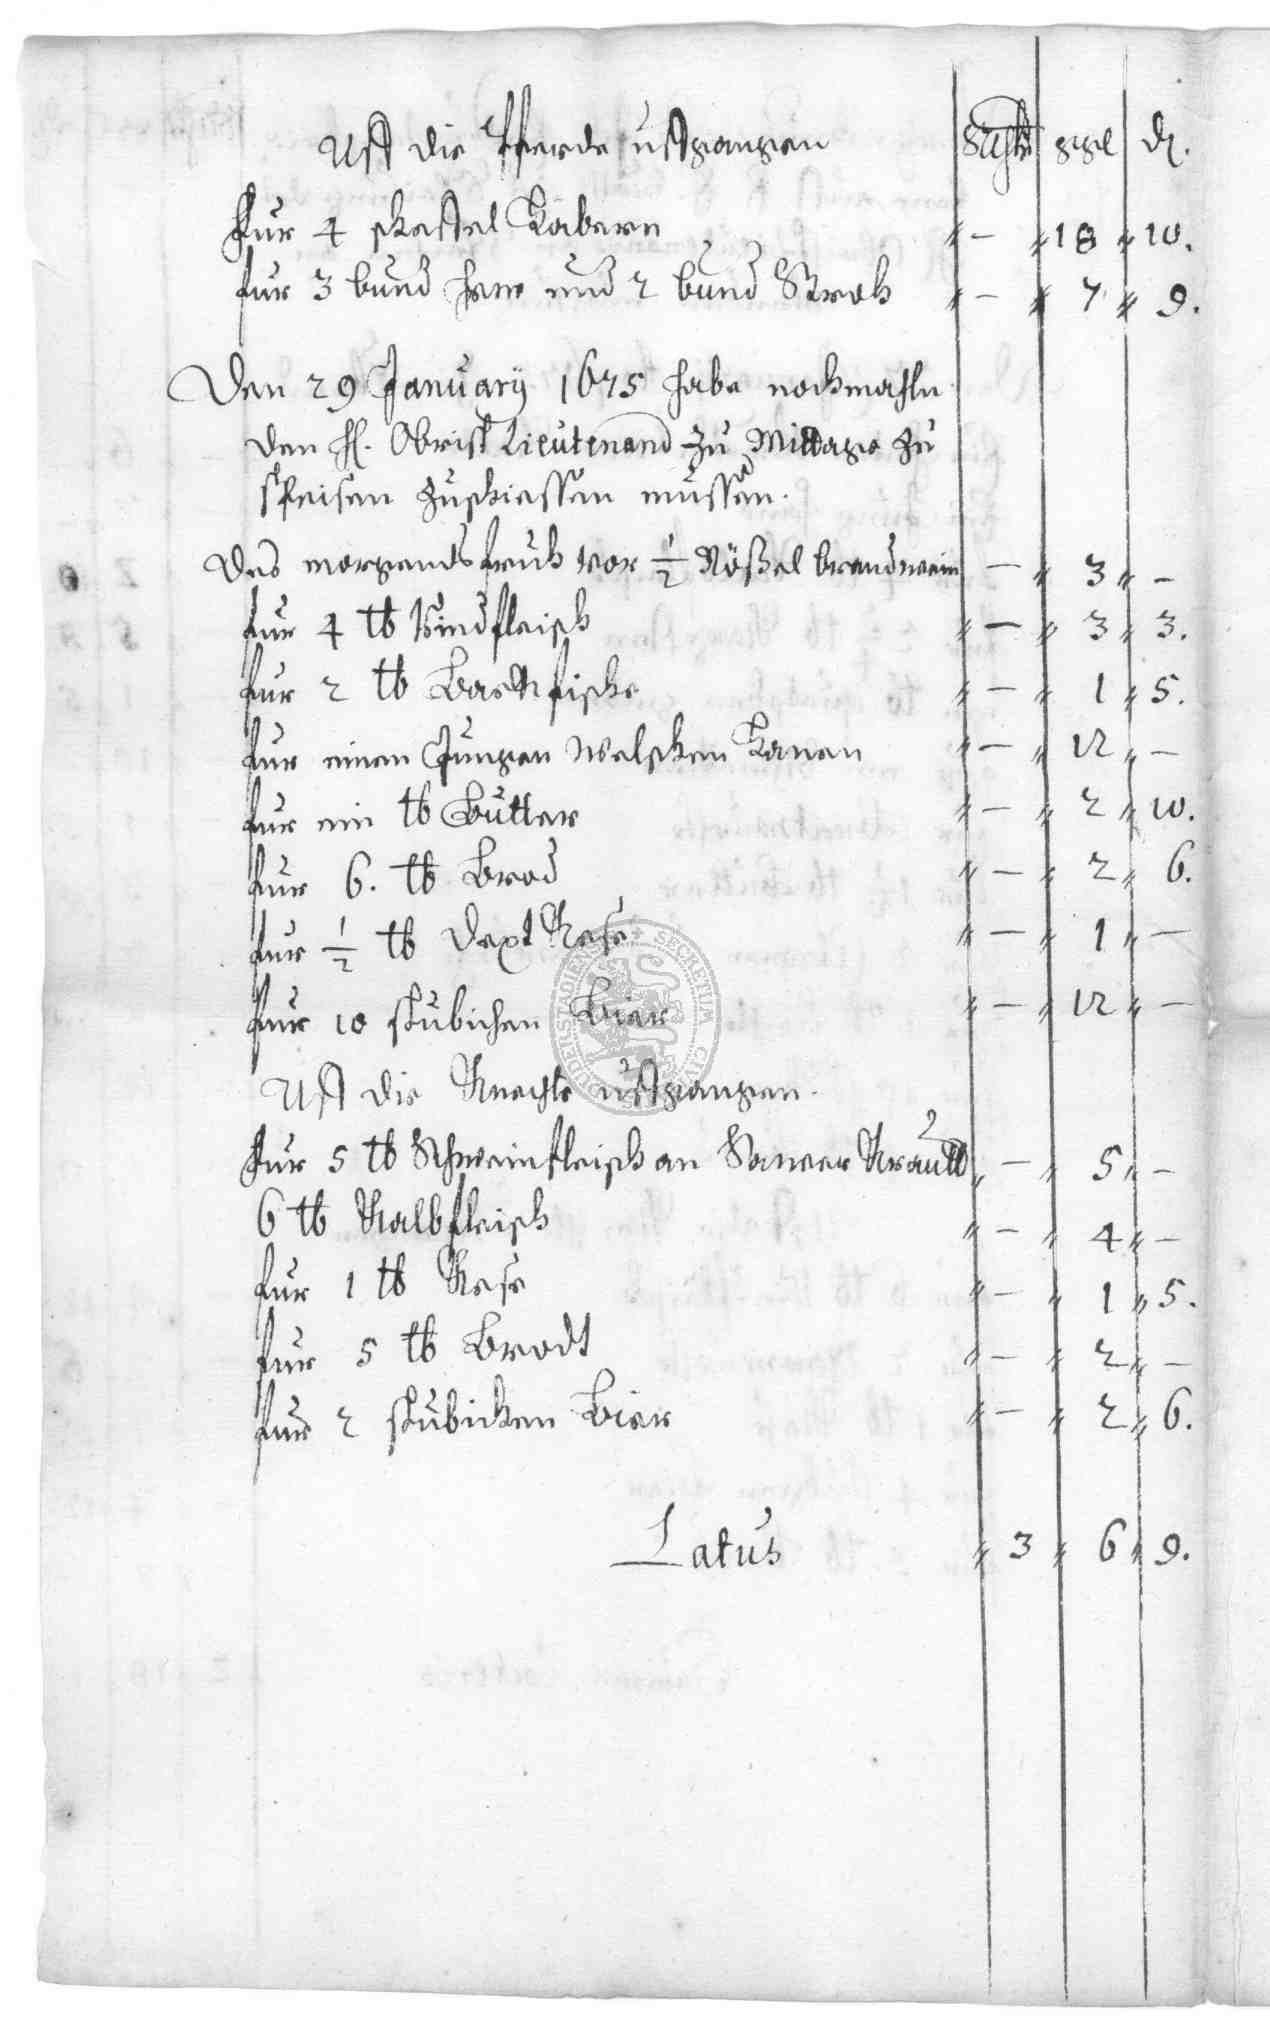 Uff die Pferde uffgangen Rthlr ggl ₰.
Fur 4 scheffel Habern " – " 18 " 10.
fur 3 bund Hew und 2 bund Stroh " – " 7 " 9.
Den 29 January 1675 habe nochmahln
den H. Obrist Lieutenand zu Mittage zu
speisen zuschiessen mussen.
Des morgends fruh vor ½ Nößel brandwein – " 3 " –
fur 4 ℔ Rindfleisch " – " 3 " 3.
fur 2 ℔ Backfische " – " 1 " 5.
fur einen Jungen Welschen Hanen " – " 12 " –
fur ein ℔ Butter " – " 2 " 10.
fur 6. ℔ Brod " – " 2 " 6.
fur ½ ℔ Kese " – " 1 " –
fur 10 stubichen Bier " – " 12 " –
Uff die Knechte uffgangen.
Fur 5 ℔ Schweinfleisch an Sauer Krautt " – " 5 " –
6 ℔ Kalbfleisch " – " 4 " –
fur 1 ℔ Kese " – " 1 " 5.
fur 5 ℔ Brodt " – " 2 " –
fur 2 stubichen Bier " – " 2 " 6.
Latus " 3 " 6 " 9.
SECRETUM DUDERSTADIENSIS